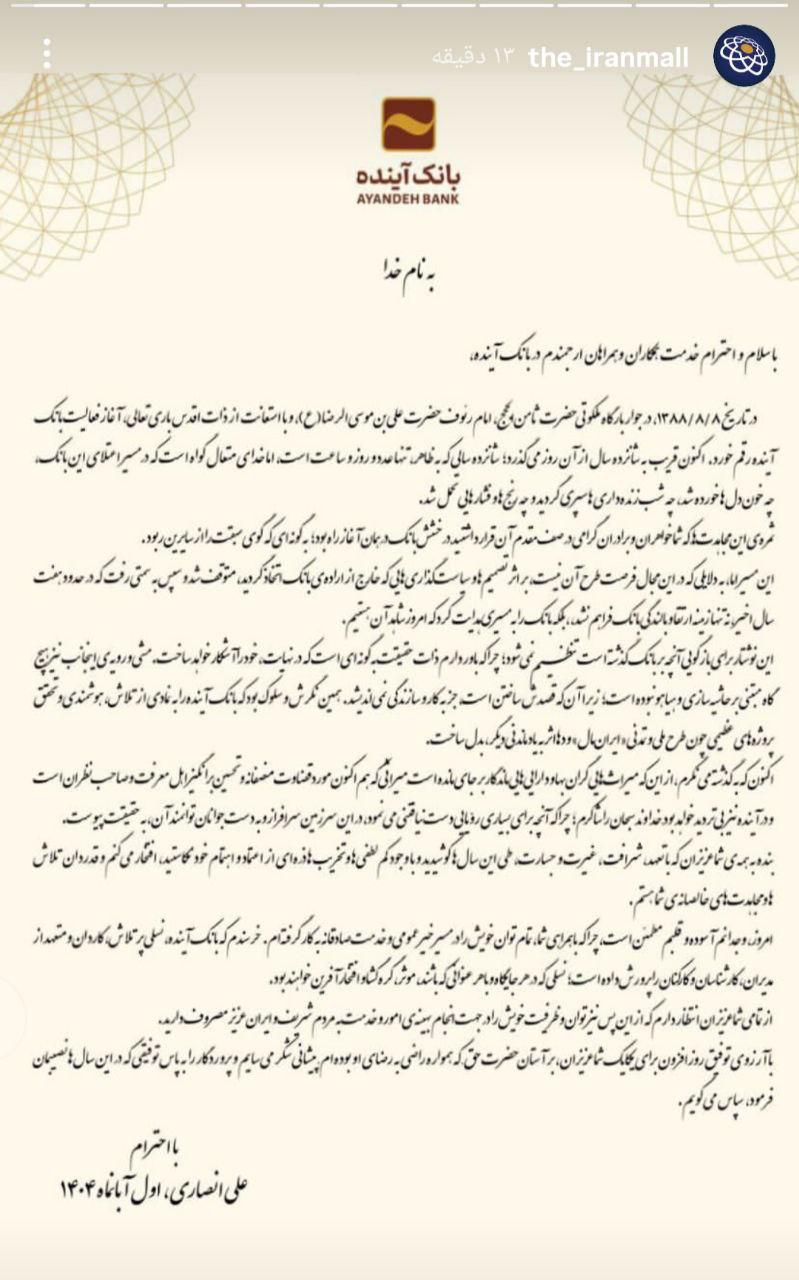 the_iranmall ۱۳ دقیقه
بانک آینده
AYANDEH BANK
به نام خدا
با سلام و احترام خدمت همکاران و همراهان ارجمندم در بانک آینده،
در تاریخ ۱۳۸۸/۸/۸، در جوار بارگاه ملکوتی حضرت ثامن‌الحجج، امام رئوف حضرت علی بن موسی الرضا(ع)، و با استعانت از ذات اقدس باری تعالی، آغاز فعالیت بانک
آینده رقم خورد. اکنون قریب به شانزده سال از آن روز می‌گذرد؛ شانزده سالی که به ظاهر، تنها عدد و روز و ساعت است، اما خدای متعال گواه است که در مسیر اعتلای این بانک،
چه خون دل‌ها خورده شد، چه شب زنده‌داری‌ها سپری گردید و چه رنج‌ها و فشارهایی تحمل شد.
ثمره‌ی این مجاهدت‌ها که شما خواهران و برادران گرامی در صف مقدم آن قرار داشتید، درخشش بانک در همان آغاز راه بود؛ به گونه‌ای که گوی سبقت را از سایرین ربود.
این مسیر اما، به دلایلی که در این مجال فرصت طرح آن نیست، بر اثر تصمیم‌ها و سیاست‌گذاری‌هایی که خارج از اراده‌ی بانک اتخاذ گردید، متوقف شد و سپس به سمتی رفت که در حدود هفت
سال اخیر، نه تنها زمینه ارتقا و بالندگی بانک فراهم نشد، بلکه بانک را به مسیری هدایت کرد که امروز شاهد آن هستیم.
این نوشتار برای بازگویی آنچه بر بانک گذشته است تنظیم نمی‌شود؛ چرا که باور دارم ذات حقیقت به گونه‌ای است که در نهایت، خود را آشکار خواهد ساخت. مشی و رویه‌ی اینجانب نیز هیچ
گاه مبتنی بر حاشیه‌سازی و هیاهو نبوده است؛ زیرا آن که قصدش ساختن است، جز به کار و سازندگی نمی‌اندیشد. همین نگرش و سلوک بود که بانک آینده را به نمادی از تلاش، هوشمندی و تحقق
پروژه‌های عظیمی چون طرح ملی و تمدنی «ایران مال» و ده‌ها اثر به یادماندنی دیگر، بدل ساخت.
اکنون که به گذشته می‌نگرم، از این که میراث‌هایی گران‌بها و دارایی‌هایی ماندگار بر جای مانده است میراثی که هم اکنون مورد قضاوت منصفانه و تحسین برانگیز اهل معرفت و صاحب نظران است
و در آینده نیز بی‌تردید خواهد بود خداوند سبحان را شاکرم؛ چرا که آنچه برای بسیاری رؤیایی دست نیافتنی می‌نمود، در این سرزمین سرافراز و به دست جوانان توانمند آن، به حقیقت پیوست.
بنده به همه‌ی شما عزیزان که با تعهد، شرافت، غیرت و جسارت، طی این سال‌ها کوشیدید و با وجود کم لطفی‌ها و تخریب‌ها ذره‌ای از اعتماد و اهتمام خود نکاستید، افتخار می‌کنم و قدردان تلاش
ها و مجاهدت‌های خالصانه‌ی شما هستم.
امروز، وجدانم آسوده و قلبم مطمئن است، چرا که با همراهی شما، تمام توان خویش را در مسیر خیر عمومی و خدمت صادقانه به کار گرفته‌ام. خرسندم که بانک آینده، نسلی پرتلاش، کاردان و متعهد از
مدیران، کارشناسان و کارکنان را پرورش داده است؛ نسلی که در هر جایگاه و با هر عنوانی که باشند، موثر، گره‌گشا و افتخارآفرین خواهند بود.
از تمامی شما عزیزان انتظار دارم که از این پس نیز توان و ظرفیت خویش را در جهت انجام بهینه‌ی امور و خدمت به مردم شریف و ایران عزیز مصروف دارید.
با آرزوی توفیق روزافزون برای یکایک شما عزیزان، بر آستان حضرت حق که همواره راضی به رضای او بوده‌ام پیشانی شکر می‌سایم و پروردگار را به پاس توفیقی که در این سال‌ها نصیبمان
فرمود، سپاس می‌گویم.
با احترام
علی انصاری، اول آبانماه ۱۴۰۴